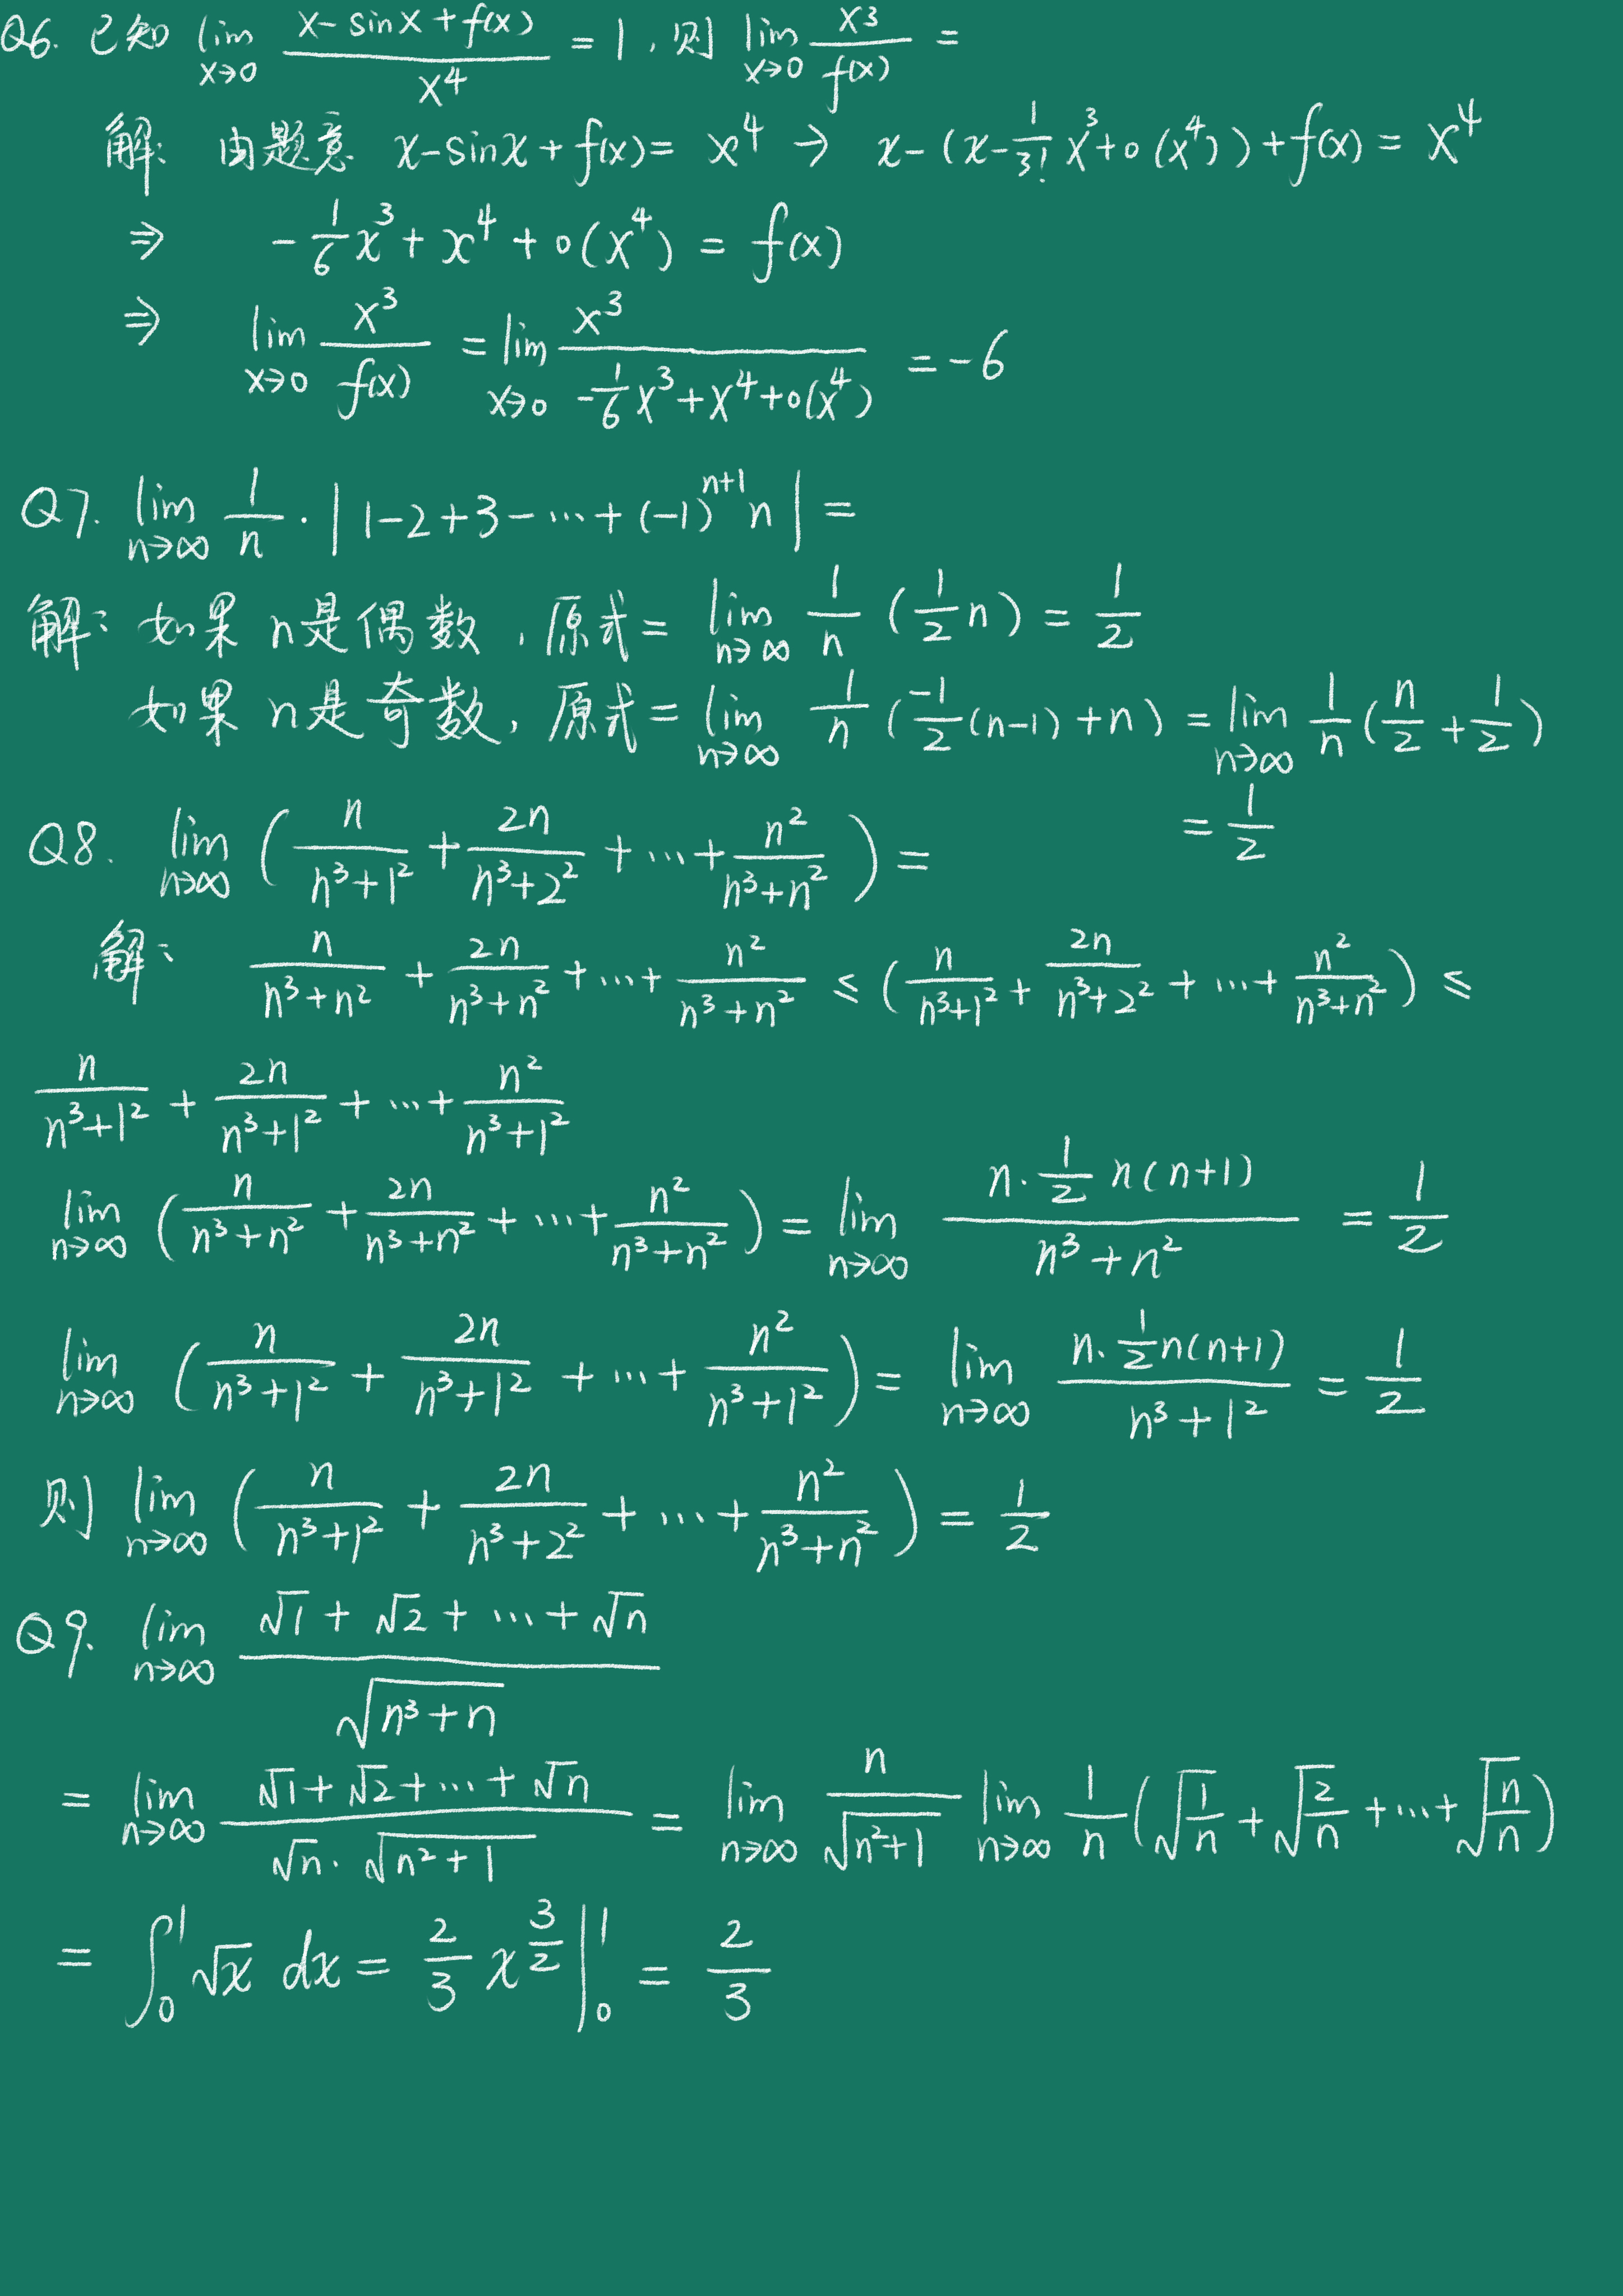 Q6. 已知 lim_{x→0} \frac{x - sinx + f(x)}{x^4} = 1, 则 lim_{x→0} \frac{x^3}{f(x)} =
解: 由题意 x-sinx+f(x) = x^4 → x-(x-\frac{1}{3!}x^3+o(x^4))+f(x) = x^4
⇒ -\frac{1}{6}x^3 + x^4 + o(x^4) = f(x)
⇒ lim_{x→0} \frac{x^3}{f(x)} = lim_{x→0} \frac{x^3}{-\frac{1}{6}x^3+x^4+o(x^4)} = -6
Q7. lim_{n→∞} \frac{1}{n} · | 1-2+3-…+(-1)^{n+1}n | =
解: 如果n是偶数, 原式 = lim_{n→∞} \frac{1}{n} (\frac{1}{2}n) = \frac{1}{2}
如果n是奇数, 原式 = lim_{n→∞} \frac{1}{n} (\frac{-1}{2}(n-1)+n) = lim_{n→∞} \frac{1}{n}(\frac{n}{2}+\frac{1}{2})
= \frac{1}{2}
Q8. lim_{n→∞} (\frac{n}{n^3+1^2} + \frac{2n}{n^3+2^2} + … + \frac{n^2}{n^3+n^2}) =
解: \frac{n}{n^3+n^2} + \frac{2n}{n^3+n^2} + … + \frac{n^2}{n^3+n^2} ≤ (\frac{n}{n^3+1^2} + \frac{2n}{n^3+2^2} + … + \frac{n^2}{n^3+n^2}) ≤
\frac{n}{n^3+1^2} + \frac{2n}{n^3+1^2} + … + \frac{n^2}{n^3+1^2}
lim_{n→∞} (\frac{n}{n^3+n^2} + \frac{2n}{n^3+n^2} + … + \frac{n^2}{n^3+n^2}) = lim_{n→∞} \frac{n·\frac{1}{2}n(n+1)}{n^3+n^2} = \frac{1}{2}
lim_{n→∞} (\frac{n}{n^3+1^2} + \frac{2n}{n^3+1^2} + … + \frac{n^2}{n^3+1^2}) = lim_{n→∞} \frac{n·\frac{1}{2}n(n+1)}{n^3+1^2} = \frac{1}{2}
则 lim_{n→∞} (\frac{n}{n^3+1^2} + \frac{2n}{n^3+2^2} + … + \frac{n^2}{n^3+n^2}) = \frac{1}{2}
Q9. lim_{n→∞} \frac{√1 + √2 + … + √n}{\sqrt{n^3+n}}
= lim_{n→∞} \frac{√1+√2+…+√n}{√n · \sqrt{n^2+1}} = lim_{n→∞} \frac{n}{\sqrt{n^2+1}} lim_{n→∞} \frac{1}{n} (\sqrt{\frac{1}{n}} + \sqrt{\frac{2}{n}} + … + \sqrt{\frac{n}{n}})
= ∫_0^1 √x dx = \frac{2}{3} x^{\frac{3}{2}} |_0^1 = \frac{2}{3}